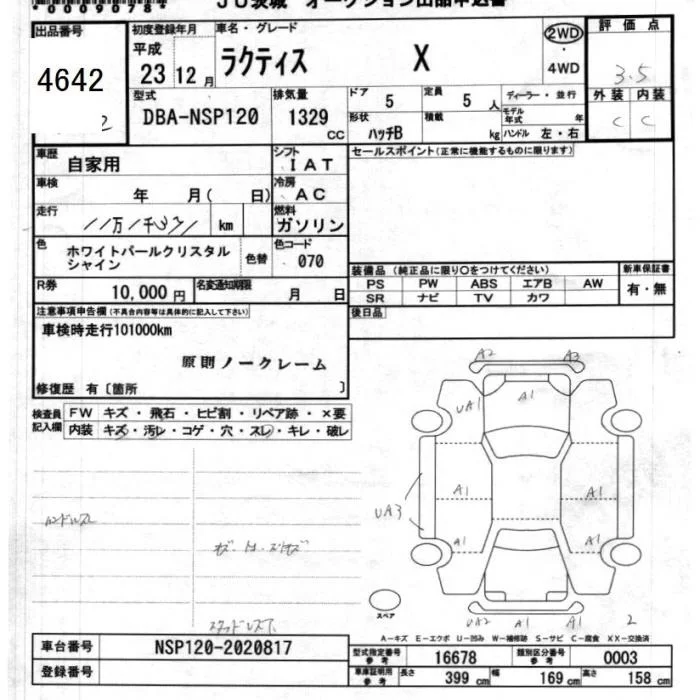 00090784
JU茨城 オークション出品申込書
出品番号
4642
2
初度登録年月
平成
23年12月
車名・グレード
ラクティス X
2WD
4WD
評価点
3.5
外装 内装
C C
型式
DBA-NSP120
排気量
1329
CC
ドア
5
定員
5人
形状
ハッチB
積載
kg
ディーラー・並行
モデル年式 年
ハンドル 左・右
車歴
自家用
シフト
IAT
車検
年 月( 日)
冷房
AC
走行
km
燃料
ガソリン
色
ホワイトパールクリスタル
シャイン
色替
色コード
070
R券
10,000円
名変通知期限
月 日
セールスポイント(正常に機能するものに限ります)
装備品(純正品に限り○をつけてください)
PS PW ABS エアB AW
SR ナビ TV カワ
新車保証書
有・無
後日品
注意事項申告欄(不具合内容等は具体的に記入して下さい)
車検時走行101000km
原則ノークレーム
修復歴 有〔箇所 〕
検査員
記入欄
FW キズ・飛石・ヒビ割・リペア跡・×要
内装 キズ・汚レ・コゲ・穴・スレ・キレ・破レ
A2 A3
UA1 A1
A1 A1
UA3
A1 A1
UA2 A1 UA1 2
スペア
A-キズ E-エクボ U-凹み W-補修跡 S-サビ C-腐食 XX-交換済
車台番号
NSP120-2020817
登録番号
型式指定番号
参考
16678
類別区分番号
参考
0003
車庫証明用
参考
長さ
399 cm
幅
169 cm
高さ
158 cm